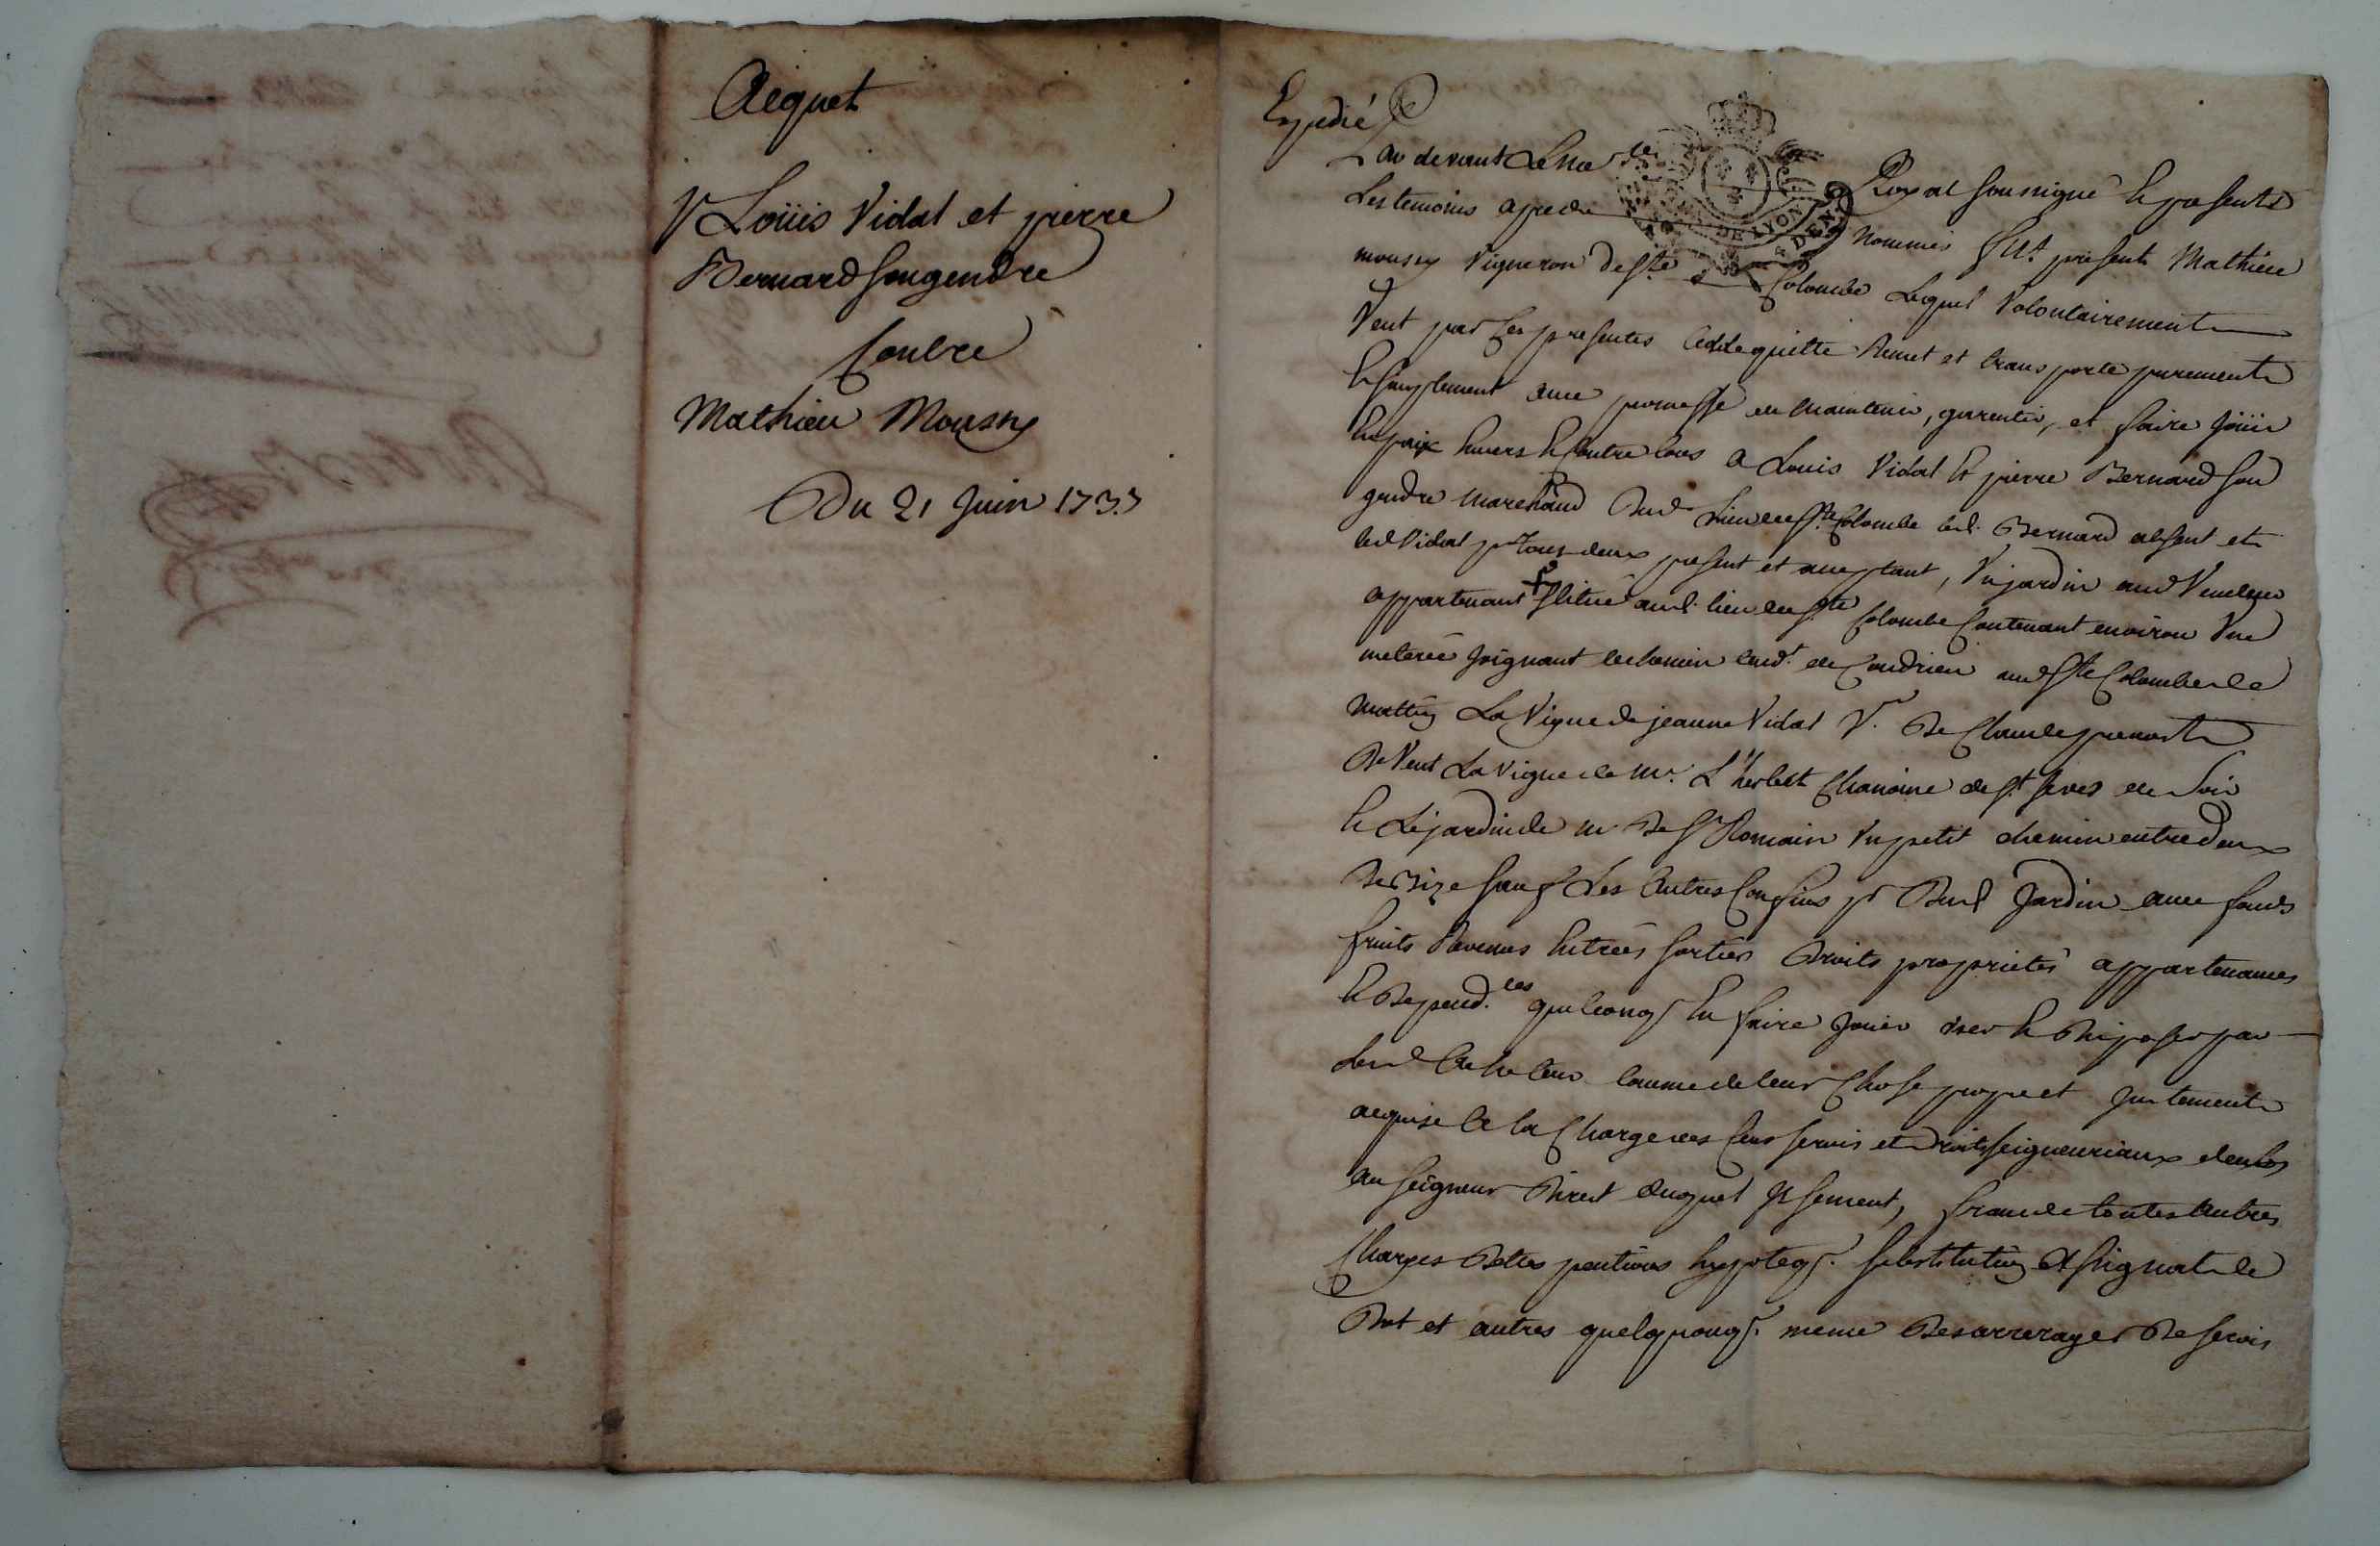 Acquet
Loüis Vidal et pierre
Bernard son gendre
Contre
Mathieu Moussy
Du 21 Juin 1733
Expedié
Par devant Le No.re Royal soussigné En presents
Les temoins apres nommés fut present Mathieu
moussy Vigneron de Ste Colombe Lequel Volontairement
Vent par Ces presentes Cedde quitte Remet et transporte purement
Et simplement avec promesse de maintenir, garentir, et faire joüir
En paix Envers Et Contre tous a Louis Vidal Et pierre Bernard son
gendre marchand Dud. Lieu de Ste Colombe led. Bernard absent et
led Vidal pr tous deux present et acceptant, Un jardin aud Vendeur
appartenant scitué aud. lieu de Ste Colombe Contenant environ Une
meterée joignant le chemin tend.t de Condrieu aud Ste Colombe de
matin La Vigne de jeanne Vidal Ve. De Claude
De Vent La Vigne de Mr. L'herbette Chanoine de St Seves de Soir
Et Le jardin de Mr De St Romain Un petit chemin entre deux
De Bize sauf Les autres Confins pr Dud Jardin avec fonds
fruits Revenus Entrées sorties Droits proprietés appartenances
Et Depend.ces quelconqs En faire jouir user Et Disposer par
Led Acheteur Comme de leur Chose propre et justement
acquise A la Charge des Cens servis et Droits seigneuriaux
au seigneur Direct duquel franc de toutes autres
Charges Dettes pentions hypoteqs. substitution Assignat de
Dot et autres quelquonqs. meme Des arrerages De servis